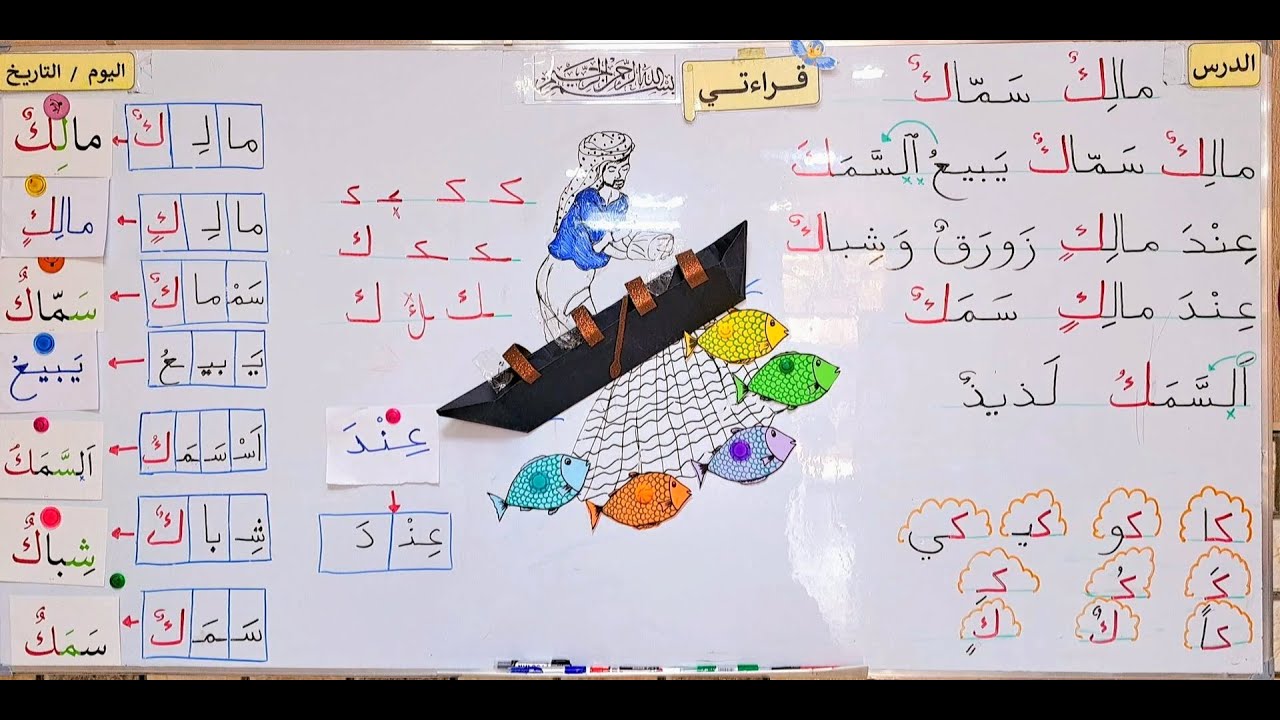 الدرس
قراءتي
بسم الله الرحمن الرحيم
اليوم / التاريخ
مالِكٌ سَمّاكٌ
مالِكٌ سَمّاكٌ يَبيعُ ٱلسَّمَكَ
عِنْدَ مالِكٍ زَورَقٌ وَشِباكٌ
عِنْدَ مالِكٍ سَمَكٌ
اَلسَّمَكُ لَذيذٌ
كا كو كيـ كي
كَ كُ كِ
كاً كٌ كٍ
كـ كـ ـكـ ـكـ
ـكـ ـكـ ك
ـك ـك ك
عِنْدَ
عِنْـ دَ
ما لِـ كٌ
مالِكٌ
ما لِـ كٍ
مالِكٍ
سَمْ ما كٌ
سَمّاكٌ
يَـ بيـ عُ
يَبيعُ
اَسْ سَـ مَـ كُ
اَلسَّمَكُ
شِـ با كٌ
شِباكٌ
سَـ مَـ كٌ
سَمَكٌ